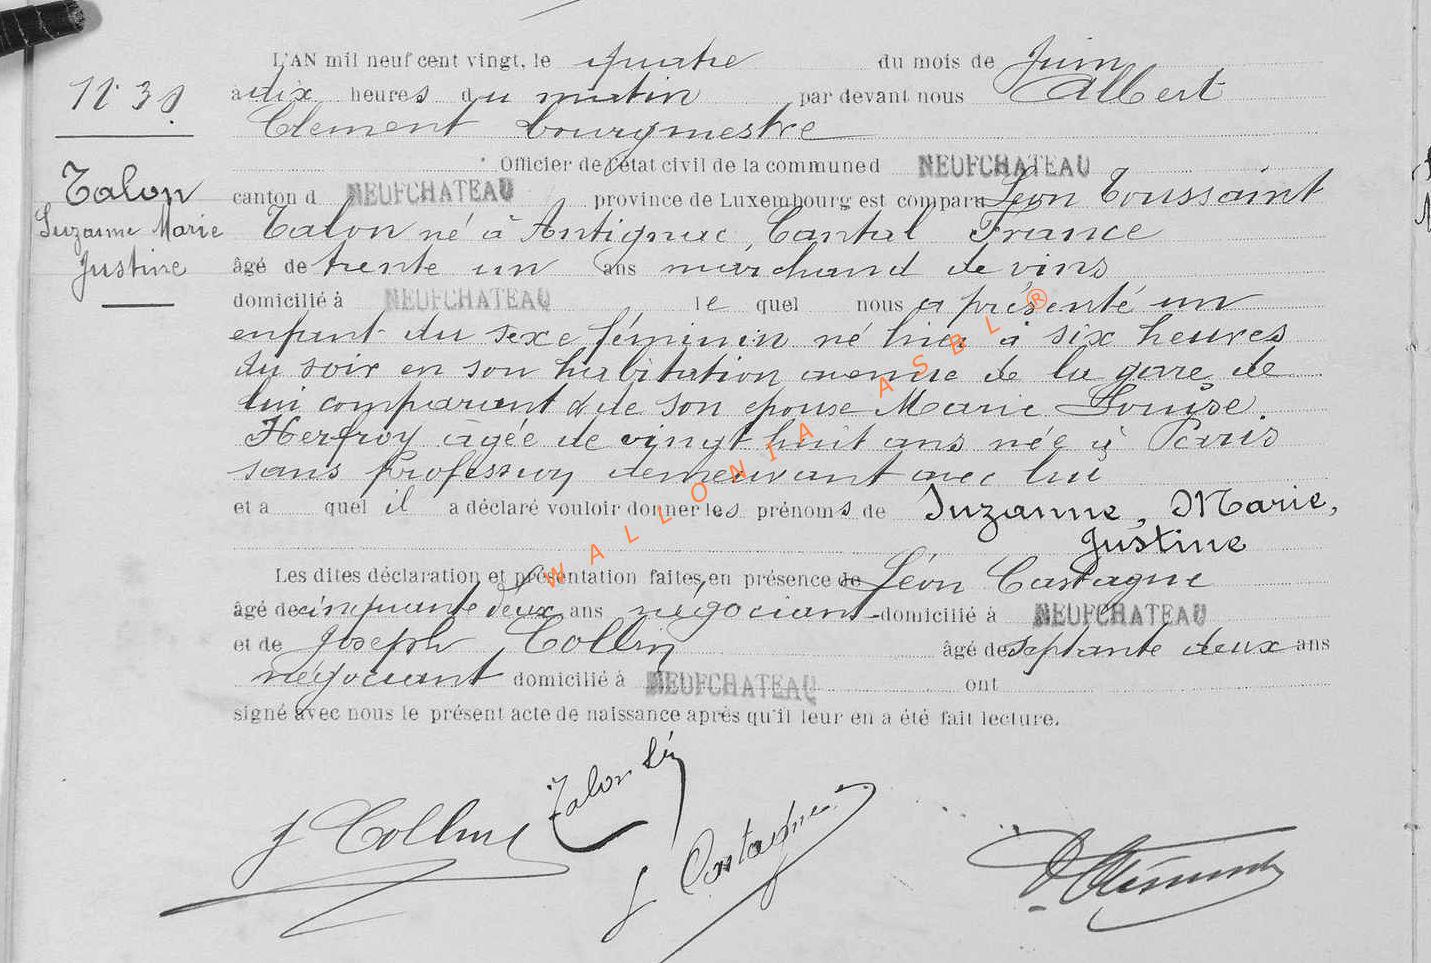 L'AN mil neuf cent vingt, le quatre du mois de Juin
à dix heures du matin par devant nous Albert
Clément bourgmestre
Officier de l'état civil de la commune d NEUFCHATEAU
canton d NEUFCHATEAU province de Luxembourg est comparu Léon Toussaint
Talon né à Antignac, Cantal France
âgé de trente un ans marchand de vins
domicilié à NEUFCHATEAU lequel nous a présenté un
enfant du sexe féminin né hier à six heures
du soir en son habitation avenue de la gare, de
lui comparant & de son épouse Marie Louise
Herfroy âgée de vingt huit ans née à Paris
sans profession demeurant avec lui
et a quel il a déclaré vouloir donner les prénoms de Suzanne, Marie,
Justine
Les dites déclaration et présentation faites en présence de Léon Castagne
âgé de cinquante deux ans négociant domicilié à NEUFCHATEAU
et de Joseph Collin âgé de septante deux ans
négociant domicilié à NEUFCHATEAU ont
signé avec nous le présent acte de naissance après qu'il leur en a été fait lecture.
Talon
Suzanne Marie
Justine
J Collin
Talon Lé
L Castagne
WALLONIA ASBL ®